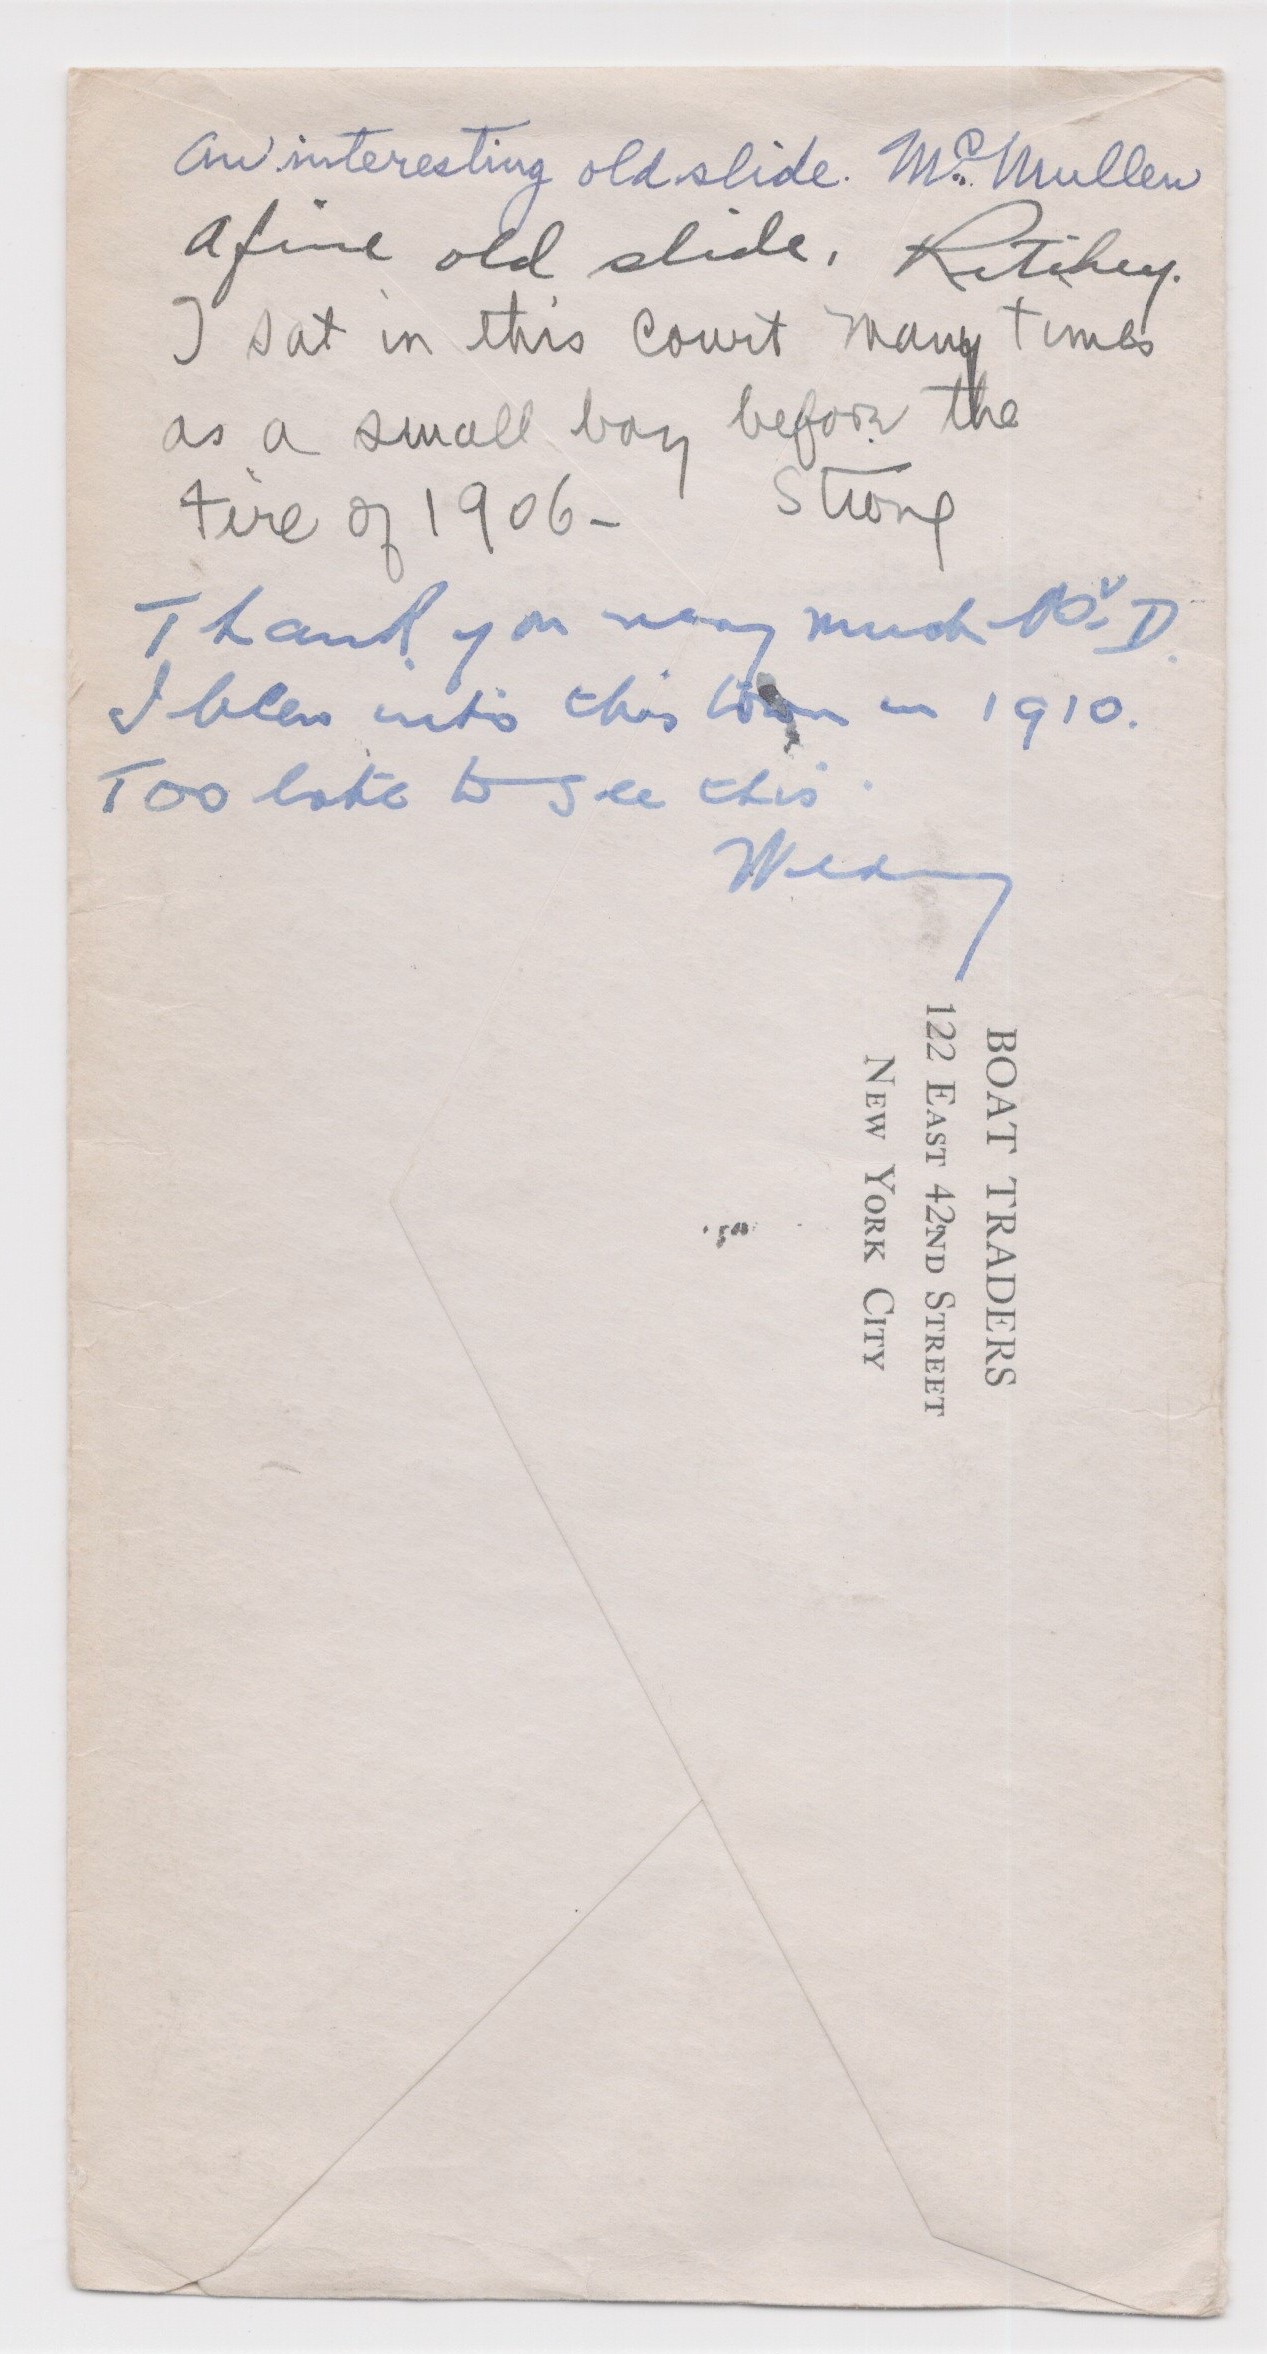 An interesting old slide. McMullen
A fine old slide.
I sat in this court many times
as a small boy before the
fire of 1906- Strong
Thank you very much D.
I blew into this town in 1910.
Too late to see this.
BOAT TRADERS
122 EAST 42ND STREET
NEW YORK CITY